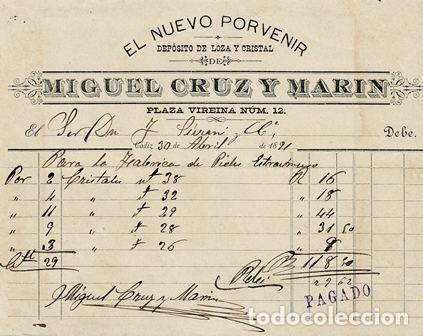 EL NUEVO PORVENIR
DEPÓSITO DE LOZA Y CRISTAL
DE
MIGUEL CRUZ Y MARIN
PLAZA VIREINA NÚM. 12.
El Sor Dn J. y Ca. Debe.
Cádiz 30 de Abril de 1891
Para la de Pieles
Por 2 Cristales nº 38 R 16
" 4 " " 32 " 18
" 11 " " 29 " 44
" 9 " " 28 " 31 50
" 3 " " 26 " 9
29 R 118 50
29 62
Miguel Cruz y Marin
PAGADO
todocoleccion